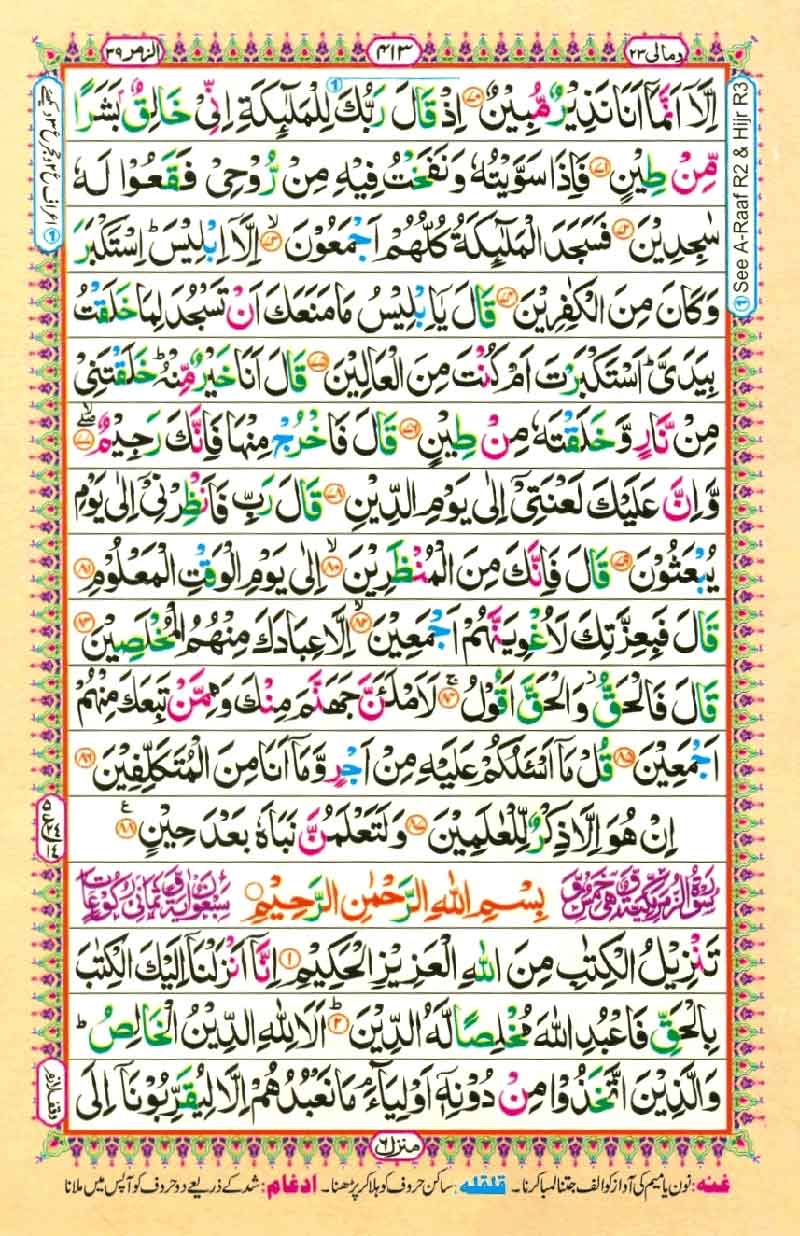 الزمر ٣٩
٤١٣
ومالی ٢٣
اِلَّاۤ اَنَّمَاۤ اَنَا نَذِيْرٌ مُّبِيْنٌ ﴿۷۰﴾ اِذْ قَالَ رَبُّكَ لِلْمَلٰٓئِكَةِ اِنِّىْ خَالِقٌۢ بَشَرًا
مِّنْ طِيْنٍ ﴿۷۱﴾ فَاِذَا سَوَّيْتُهٗ وَنَفَخْتُ فِيْهِ مِنْ رُّوْحِىْ فَقَعُوْا لَهٗ
سٰجِدِيْنَ ﴿۷۲﴾ فَسَجَدَ الْمَلٰٓئِكَةُ كُلُّهُمْ اَجْمَعُوْنَ ﴿۷۳﴾ اِلَّاۤ اِبْلِيْسَ ؕ اِسْتَكْبَرَ
وَكَانَ مِنَ الْكٰفِرِيْنَ ﴿۷۴﴾ قَالَ يَاۤاِبْلِيْسُ مَا مَنَعَكَ اَنْ تَسْجُدَ لِمَا خَلَقْتُ
بِيَدَىَّ ؕ اَسْتَكْبَرْتَ اَمْ كُنْتَ مِنَ الْعَالِيْنَ ﴿۷۵﴾ قَالَ اَنَا خَيْرٌ مِّنْهُ ؕ خَلَقْتَنِىْ
مِنْ نَّارٍ وَّخَلَقْتَهٗ مِنْ طِيْنٍ ﴿۷۶﴾ قَالَ فَاخْرُجْ مِنْهَا فَاِنَّكَ رَجِيْمٌ ﴿۷۷﴾
وَّاِنَّ عَلَيْكَ لَعْنَتِىْۤ اِلٰى يَوْمِ الدِّيْنِ ﴿۷۸﴾ قَالَ رَبِّ فَاَنْظِرْنِىْۤ اِلٰى يَوْمِ
يُبْعَثُوْنَ ﴿۷۹﴾ قَالَ فَاِنَّكَ مِنَ الْمُنْظَرِيْنَ ﴿۸۰﴾ اِلٰى يَوْمِ الْوَقْتِ الْمَعْلُوْمِ ﴿۸۱﴾
قَالَ فَبِعِزَّتِكَ لَاُغْوِيَنَّهُمْ اَجْمَعِيْنَ ﴿۸۲﴾ اِلَّا عِبَادَكَ مِنْهُمُ الْمُخْلَصِيْنَ ﴿۸۳﴾
قَالَ فَالْحَقُّ وَالْحَقَّ اَقُوْلُ ﴿۸۴﴾ لَاَمْلَئَنَّ جَهَنَّمَ مِنْكَ وَمِمَّنْ تَبِعَكَ مِنْهُمْ
اَجْمَعِيْنَ ﴿۸۵﴾ قُلْ مَاۤ اَسْئَلُكُمْ عَلَيْهِ مِنْ اَجْرٍ وَّمَاۤ اَنَا مِنَ الْمُتَكَلِّفِيْنَ ﴿۸۶﴾
اِنْ هُوَ اِلَّا ذِكْرٌ لِّلْعٰلَمِيْنَ ﴿۸۷﴾ وَلَتَعْلَمُنَّ نَبَاَهٗ بَعْدَ حِيْنٍ ﴿۸۸﴾
بِسْمِ اللهِ الرَّحْمٰنِ الرَّحِيْمِ
تَنْزِيْلُ الْكِتٰبِ مِنَ اللهِ الْعَزِيْزِ الْحَكِيْمِ ﴿۱﴾ اِنَّاۤ اَنْزَلْنَاۤ اِلَيْكَ الْكِتٰبَ
بِالْحَقِّ فَاعْبُدِ اللهَ مُخْلِصًا لَّهُ الدِّيْنَ ﴿۲﴾ اَلَا لِلّٰهِ الدِّيْنُ الْخَالِصُ ؕ
وَالَّذِيْنَ اتَّخَذُوْا مِنْ دُوْنِهٖۤ اَوْلِيَآءَ ۘ مَا نَعْبُدُهُمْ اِلَّا لِيُقَرِّبُوْنَاۤ اِلَى
① See A-Raaf R2 & Hijr R3
وقف لازم
منزل ٦
غنہ: نون یا میم کی آواز کو الف جتنا لمبا کرنا۔ قلقلہ: ساکن حروف کو ہلا کر پڑھنا۔ ادغام: شد کے ذریعے دو حروف کو آپس میں ملانا